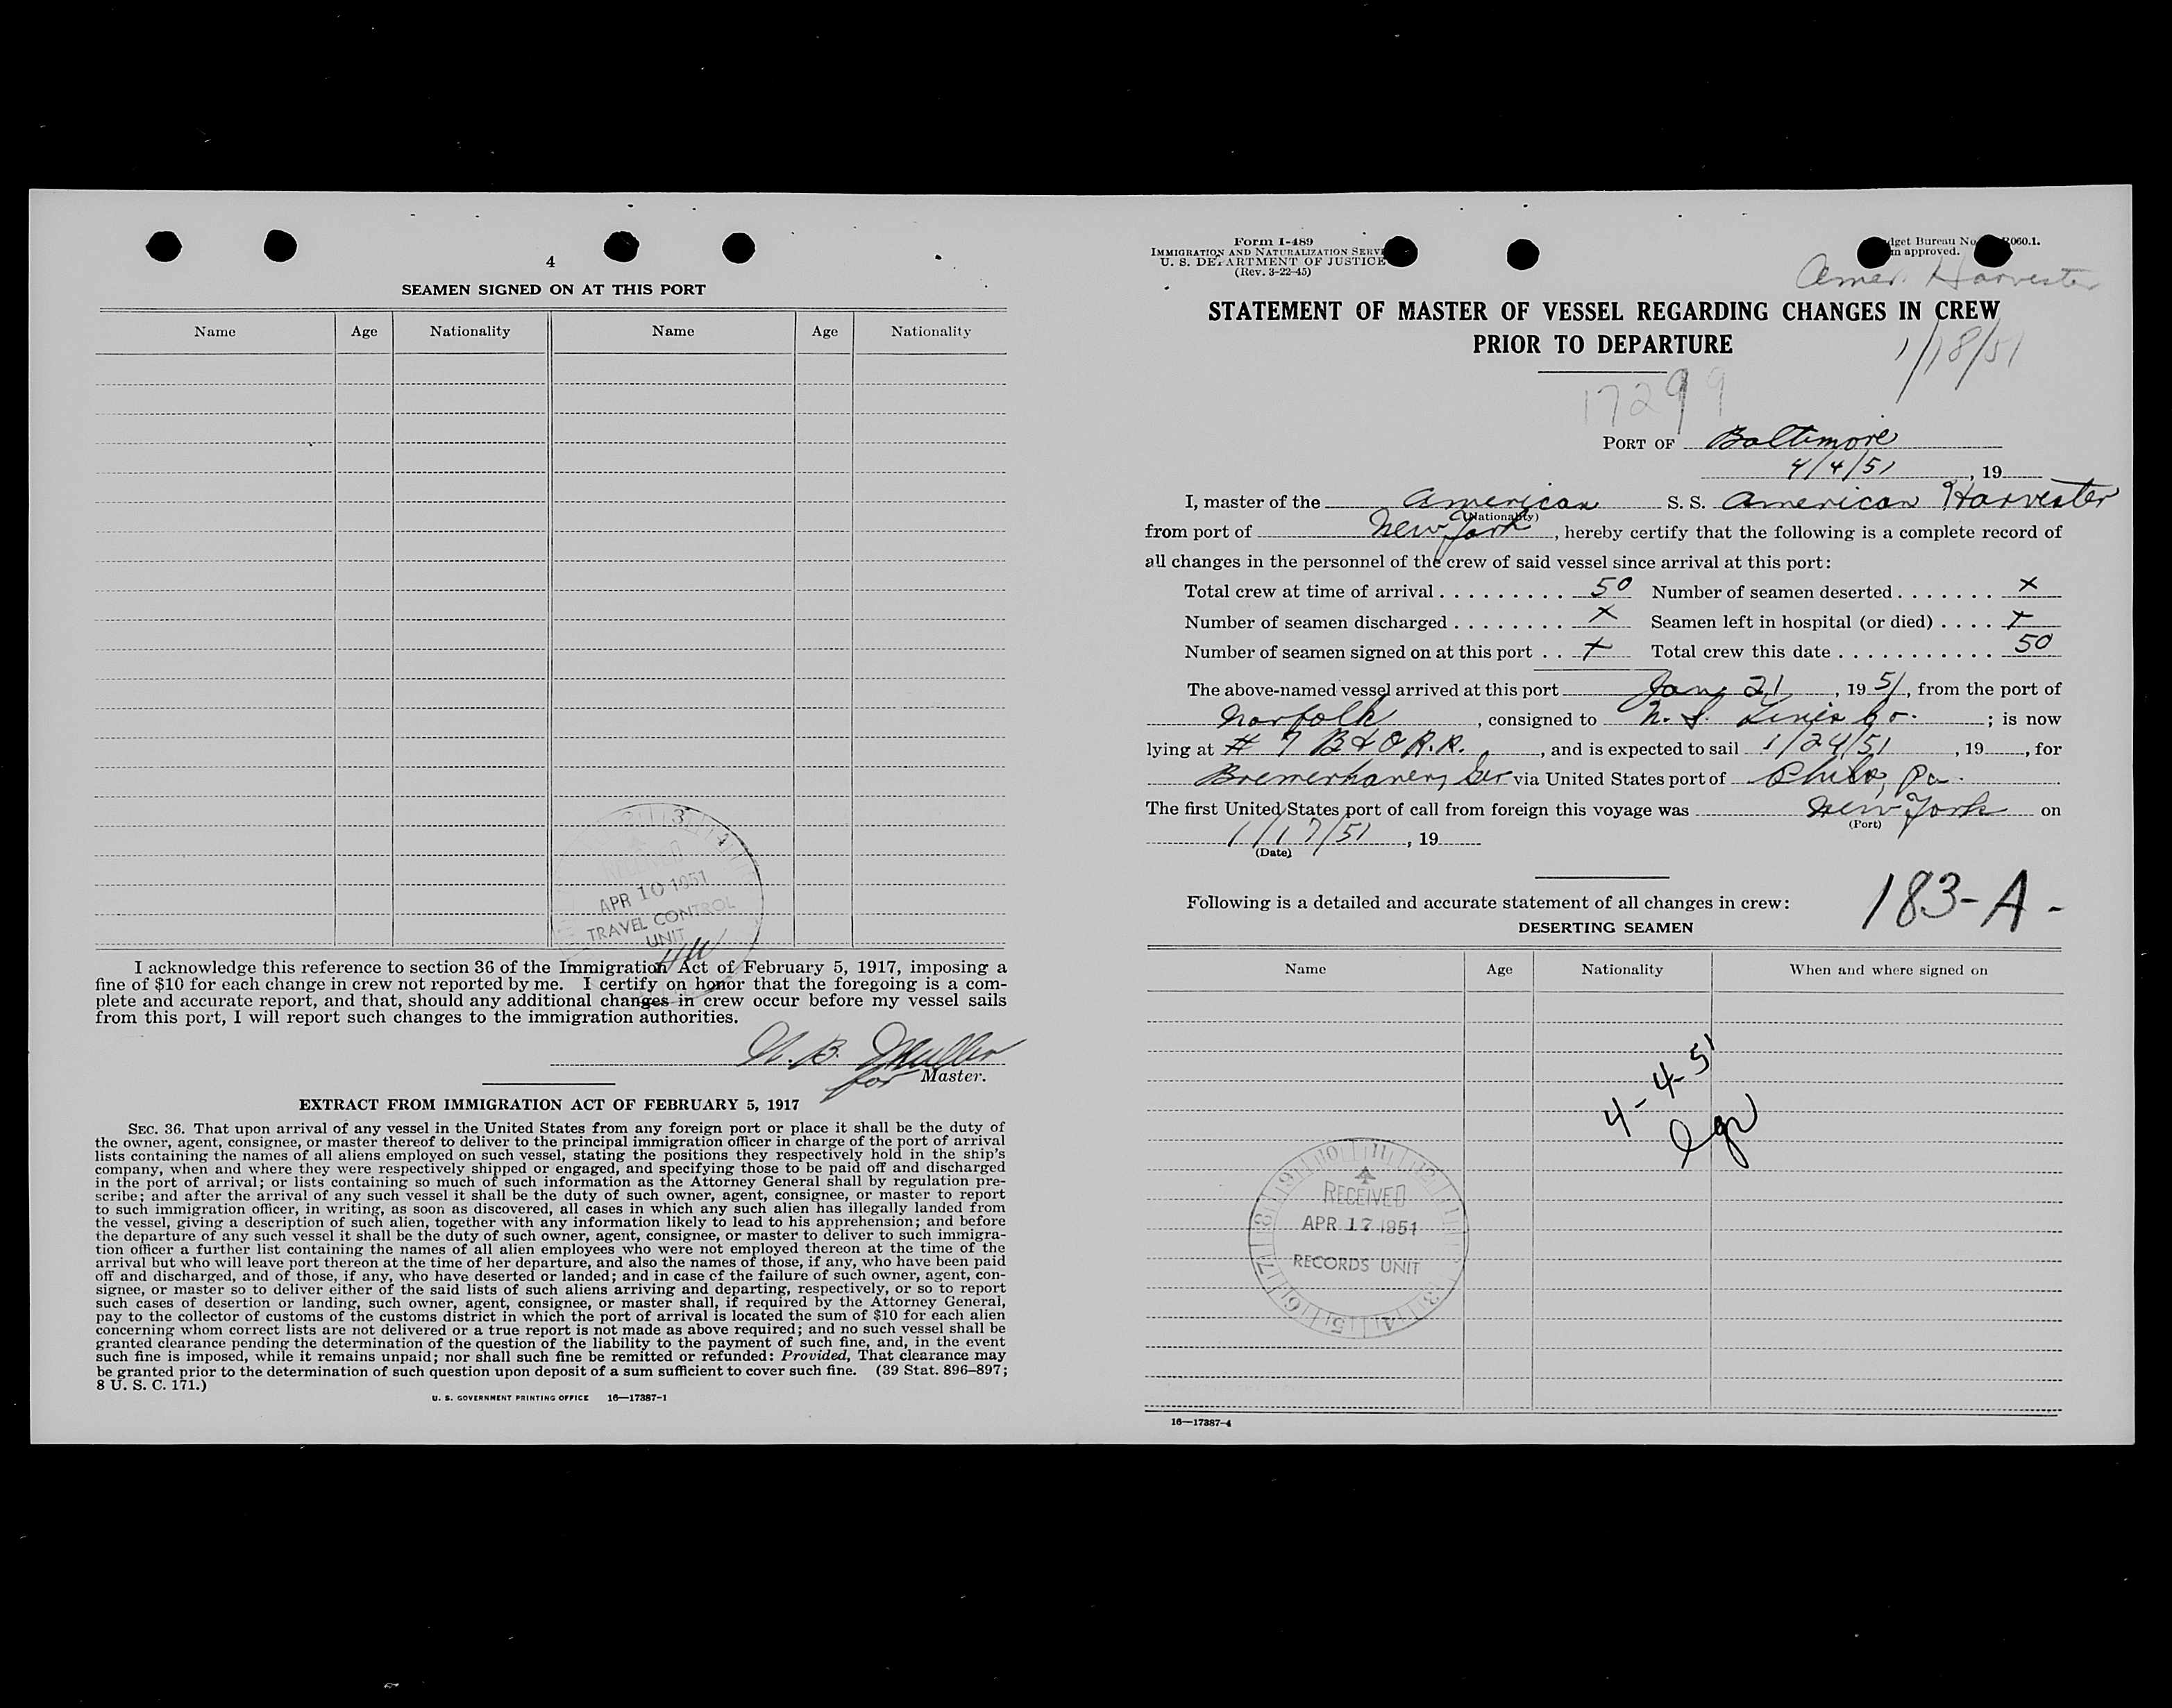 4
SEAMEN SIGNED ON AT THIS PORT
Name Age Nationality Name Age Nationality
RECEIVED
APR 10 1951
TRAVEL CONTROL
UNIT
I acknowledge this reference to section 36 of the Immigration Act of February 5, 1917, imposing a
fine of $10 for each change in crew not reported by me. I certify on honor that the foregoing is a com-
plete and accurate report, and that, should any additional changes in crew occur before my vessel sails
from this port, I will report such changes to the immigration authorities.
B. Muller
for Master.
EXTRACT FROM IMMIGRATION ACT OF FEBRUARY 5, 1917
SEC. 36. That upon arrival of any vessel in the United States from any foreign port or place it shall be the duty of
the owner, agent, consignee, or master thereof to deliver to the principal immigration officer in charge of the port of arrival
lists containing the names of all aliens employed on such vessel, stating the positions they respectively hold in the ship's
company, when and where they were respectively shipped or engaged, and specifying those to be paid off and discharged
in the port of arrival; or lists containing so much of such information as the Attorney General shall by regulation pre-
scribe; and after the arrival of any such vessel it shall be the duty of such owner, agent, consignee, or master to report
to such immigration officer, in writing, as soon as discovered, all cases in which any such alien has illegally landed from
the vessel, giving a description of such alien, together with any information likely to lead to his apprehension; and before
the departure of any such vessel it shall be the duty of such owner, agent, consignee, or master to deliver to such immigra-
tion officer a further list containing the names of all alien employees who were not employed thereon at the time of the
arrival but who will leave port thereon at the time of her departure, and also the names of those, if any, who have been paid
off and discharged, and of those, if any, who have deserted or landed; and in case of the failure of such owner, agent, con-
signee, or master so to deliver either of the said lists of such aliens arriving and departing, respectively, or so to report
such cases of desertion or landing, such owner, agent, consignee, or master shall, if required by the Attorney General,
pay to the collector of customs of the customs district in which the port of arrival is located the sum of $10 for each alien
concerning whom correct lists are not delivered or a true report is not made as above required; and no such vessel shall be
granted clearance pending the determination of the question of the liability to the payment of such fine, and, in the event
such fine is imposed, while it remains unpaid; nor shall such fine be remitted or refunded: Provided, That clearance may
be granted prior to the determination of such question upon deposit of a sum sufficient to cover such fine. (39 Stat. 896–897;
8 U. S. C. 171.)
U. S. GOVERNMENT PRINTING OFFICE 16—17387-1
Form I-489
IMMIGRATION AND NATURALIZATION SERV
U. S. DEPARTMENT OF JUSTICE
(Rev. 3-22-45)
dget Bureau No. R060.1.
m approved.
Amer. Harvester
STATEMENT OF MASTER OF VESSEL REGARDING CHANGES IN CREW
PRIOR TO DEPARTURE
1/18/51
17299
PORT OF Baltimore
4/4/51, 19
I, master of the American S. S. American Harvester
(Nationality)
from port of New York, hereby certify that the following is a complete record of
all changes in the personnel of the crew of said vessel since arrival at this port:
Total crew at time of arrival 50 Number of seamen deserted x
Number of seamen discharged x Seamen left in hospital (or died) x
Number of seamen signed on at this port x Total crew this date 50
The above-named vessel arrived at this port Jan 21, 1951, from the port of
Norfolk, consigned to Lines Co.; is now
lying at # 7 B & O R.R., and is expected to sail 1/24/51, 19, for
Bremerhaven, Ger via United States port of Phila, Pa.
The first United States port of call from foreign this voyage was New York on
(Port)
1/17/51, 19
(Date)
183-A-
Following is a detailed and accurate statement of all changes in crew:
DESERTING SEAMEN
Name Age Nationality When and where signed on
4-4-51
RECEIVED
APR 17 1951
RECORDS UNIT
16—17387-4